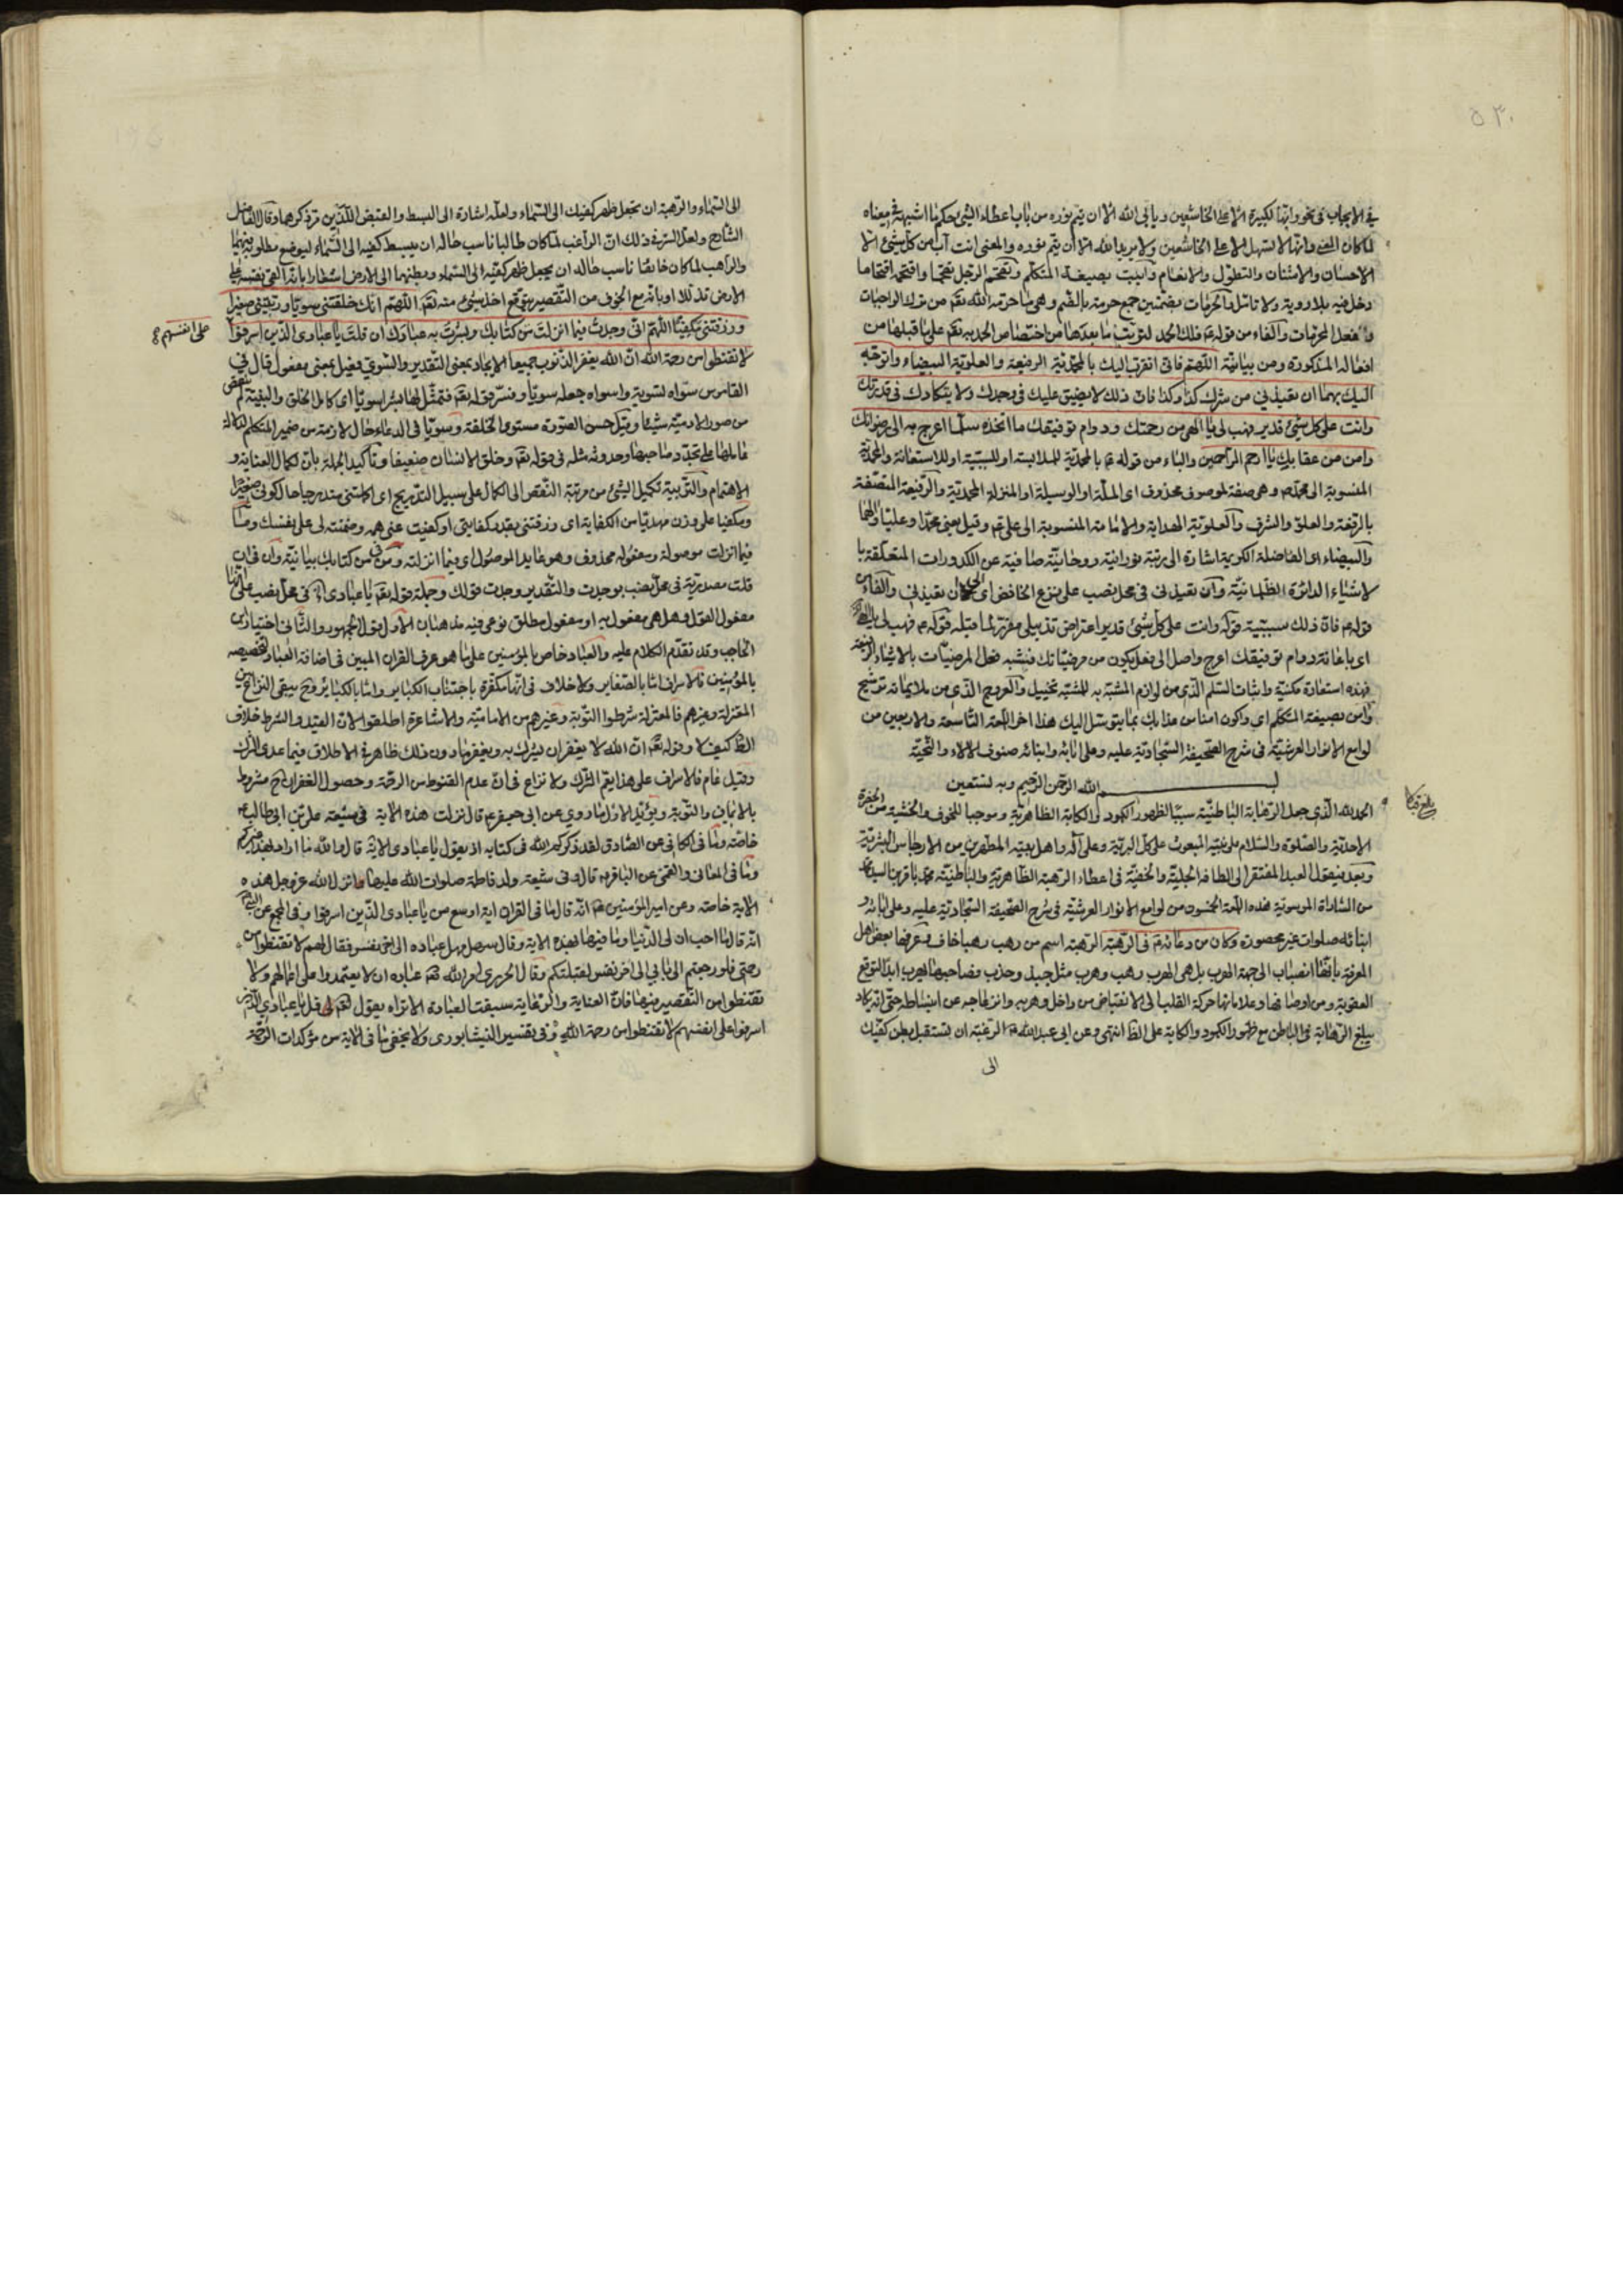 ٥٣٠
في الايجاب في نحو وانها لكبيرة الا على الخاشعين ويابى الله الا ان يتم نوره من باب اعطاء الشئ حكم ما اشبهه في معناه
لما كان المعنى وانها لا تسهل الا على الخاشعين ولا يريد الله الا ان يتم نوره والمعنى انت آب من كل شئ الا
الاحسان والامتنان والتطول والانعام وآبيت بصيغة المتكلم وتقحم الرجل تقحما واقتحم اقتحاما
دخل فيه بلا روية ولا تامل والحرمات بضمتين جمع حرمة بالضم وهي ما حرمه الله تعم من ترك الواجبات
وفعل المحرمات والفاء من قوله عم فلك الحمد لترتيب ما بعدها من اختصاص الحمد به تعم على ما قبلها من
افعاله المذكورة ومن بيانية اللهم فاني اتقرب اليك بالمحمدية الرفيعة والعلوية البيضاء واتوجه
اليك بهما ان تعيذني من شر كذا وكذا فان ذلك لا يضيق عليك في وجدك ولا يتكادك في قدرتك
وانت على كل شئ قدير فهب لي يا الهي من رحمتك ودوام توفيقك ما اتخذه سلما اعرج به الى رضوانك
وامن من عقابك يا ارحم الراحمين والباء من قوله عم بالمحمدية للملابسة او للسببية او للاستعانة والمحمدية
المنسوبة الى محمد ص وهي صفة لموصوف محذوف اى الملة او الوسيلة او المنزلة المحمدية والرفيعة المتصفة
بالرفعة والعلو والشرف والعلوية الهداية والامامة المنسوبة الى على عم وقيل يعني محمدا وعليا وآلهما
والبيضاء اى الفاضلة الكريمة اشارة الى رتبة نورانية وروحانية صافية عن الكدورات المتعلقة با
لاشياء الدائرة الظلمانية وآن تعيذني في محل نصب على نزع الخافض اى ان تعيذني والفاء من
قوله عم فان ذلك سببية قوله وانت على كل شئ قدير اعتراض تذييلي مقرر لما قبله قوله عم فهب لي يا الهى
اى باعانة دوام توفيقك اعرج واصل الى فعل يكون من مرضياتك فشبه فعل المرضيات بالاشياء الرفيعة
فهذه استعارة مكنية واثبات السلم الذي من لوازم المشبه به للمشبه تخييل والعروج الذي من ملايماته ترشيح
وآمن بصيغة المتكلم اى واكون امنا من عذابك بما يتوسل اليك هذا اخر اللمعة التاسعة والاربعين من
لوامع الانوار العرشية في شرح الصحيفة السجادية عليه وعلى آبائه وابنائه صنوف الالاء والتحية
بسم الله الرحمن الرحيم وبه نستعين
الحمد لله الذي جعل الرهبانية الباطنية سببا لظهور الكمود والكابة الظاهرية وموجبا للخوف والخشية من الحضرة
الاحدية والصلوة والسلام على نبيه المبعوث على كل البرية وعلى آله واهل بيته المطهرين من الارجاس البشرية
وبعد فيقول العبد المفتقر الى الطافه الجلية والخفية في اعطاء الرهبة الظاهرية والباطنية محمد باقر بن السيد محمد
من السادات الموسوية هذه اللمعة الخمسون من لوامع الانوار العرشية في شرح الصحيفة السجادية عليه وعلى ابائه و
ابنائه صلوات غير محصورة وكان من دعائه عم في الرهبة الرهبة اسم من رهب رهبا خاف وعرفها بعض اهل
المعرفة بانها انصباب الى جهة الهرب بل هي الهرب رهب وهرب مثل جبذ وجذب فصاحبها يهرب ابدا لتوقع
العقوبة ومن اوصافها وعلاماتها حركة القلب الى الانقباض من داخل وهربه وانزعاجه عن انبساطه حتى انه يكاد
يبلغ الرهابة في الباطن مع ظهور الكمود والكابة على الظا انتهى وعن ابي عبد الله عم الرغبة ان تستقبل ببطن كفيك
الى
الى السماء والرهبة ان تجعل ظهر كفيك الى السماء ولعله اشارة الى البسط والقبض اللذين مر ذكرهما وقال الفاضل
الشارح ولعل السر في ذلك ان الراغب لما كان طالبا ناسب حاله ان يبسط كفيه الى السماء ليوضع مطلوبه فيهما
والراهب لما كان خائفا ناسب حاله ان يجعل ظهر كفيه الى السماء وبطنهما الى الارض اشعارا بانه القى نفسه على
الارض تذللا او بانه مع الخوف من التقصير يتوقع اخذ شئ منه تعم اللهم انك خلقتني سويا وربيتني صغيرا
ورزقتني مكفيا اللهم اني وجدت فيما انزلت من كتابك وبشرت به عبادك ان قلت يا عبادى الذين اسرفوا
على انفسهم
لا تقنطوا من رحمة الله ان الله يغفر الذنوب جميعا الايجاد بمعنى التقدير والسوي فعيل بمعنى مفعول قال في
القاموس سواه تسوية واسواه جعله سويا وفسر قوله تعم فتمثل لها بشرا سويا اى كامل الخلق والبنية لم ينقص
من صور الادمية شيئا وقيل حسن الصورة مستوى الخلقة وسويا في الدعاء حال لازمة من ضمير المتكلم لدلالة
عاملها على تجدد صاحبها وحدوثه مثله في قوله تعم وخلق الانسان ضعيفا وتاكيد الجملة بان لكمال العناية و
الاهتمام والتربية تكميل الشئ من مرتبة النقص الى الكمال على سبيل التدريج
ومكفيا على وزن مهديا من الكفاية اى ورزقتني بقدر كفايتي او كفيت عني همه وضمنته لى على نفسك وما
فيما انزلت موصولة ومفعوله محذوف وهو عايد الموصول اى فيما انزلته ومن في من كتابك بيانية وان في ان
قلت مصدرية في محل نصب بوجدت والتقدير وجدت قولك وجملة قوله تعم يا عبادى اه في محل نصب على انها
مفعول القول وهل هي مفعول به او مفعول مطلق نوعي فيه مذهبان الاول قول الجمهور والثاني اختيار ابن
الحاجب وقد تقدم الكلام عليه والعباد خاص بالمؤمنين على ما هو عرف القران المبين في اضافة العباد لتخصيصه
بالمؤمنين فالاسراف اما بالصغاير ولا خلاف في انها مكفرة باجتناب الكباير واما بالكباير وح يبقى النزاع بين
المعتزلة وغيرهم فالمعتزلة شرطوا التوبة وغيرهم من الامامية والاشاعرة اطلقوا لان القيد والشرط خلاف
الظ كيف لا وقوله تعم ان الله لا يغفر ان يشرك به ويغفر ما دون ذلك ظاهر في الاطلاق فيما عدى الشرك
وقيل عام فالاسراف على هذا يعم الشرك ولا نزاع في ان عدم القنوط من الرحمة وحصول الغفران ح مشروط
بالايمان والتوبة ويؤيد الاول ما روي عن ابى جعفر عم قال نزلت هذه الاية في شيعة على بن ابى طالب عم
خاصة وما في الكافي عن الصادق لقد ذكركم الله في كتابه اذ يقول يا عبادى الاية قال والله ما اراد بهذا غيركم
وما في المعاني والقمي عن الباقر عم قال وفي شيعة ولد فاطمة صلوات الله عليها وانزل الله عز وجل هذه
الاية خاصة وعن امير المؤمنين عم انه قال ما في القران اية اوسع من يا عبادى الذين اسرفوا وفي المجمع عن النبي ص
انه قال ما احب ان لى الدنيا وما فيها بهذه الاية وقال سهل عباده الى اخر نفس فقال لهم لا تقنطوا من
رحمتي فلو رجعتم الى بابي الى اخر نفس لقبلتكم وقال الحريرى امر الله تعم عباده ان لا يعتمدوا على اعمالهم ولا
تقنطوا من التقصير فيها فان العناية والرعاية سبقت العبادة الا تراه يقول تعم قل يا عبادي الذين
اسرفوا على انفسهم لا تقنطوا من رحمة الله وفي تفسير النيشابورى ولا يخفى ما في الاية من مؤكدات الرحمة